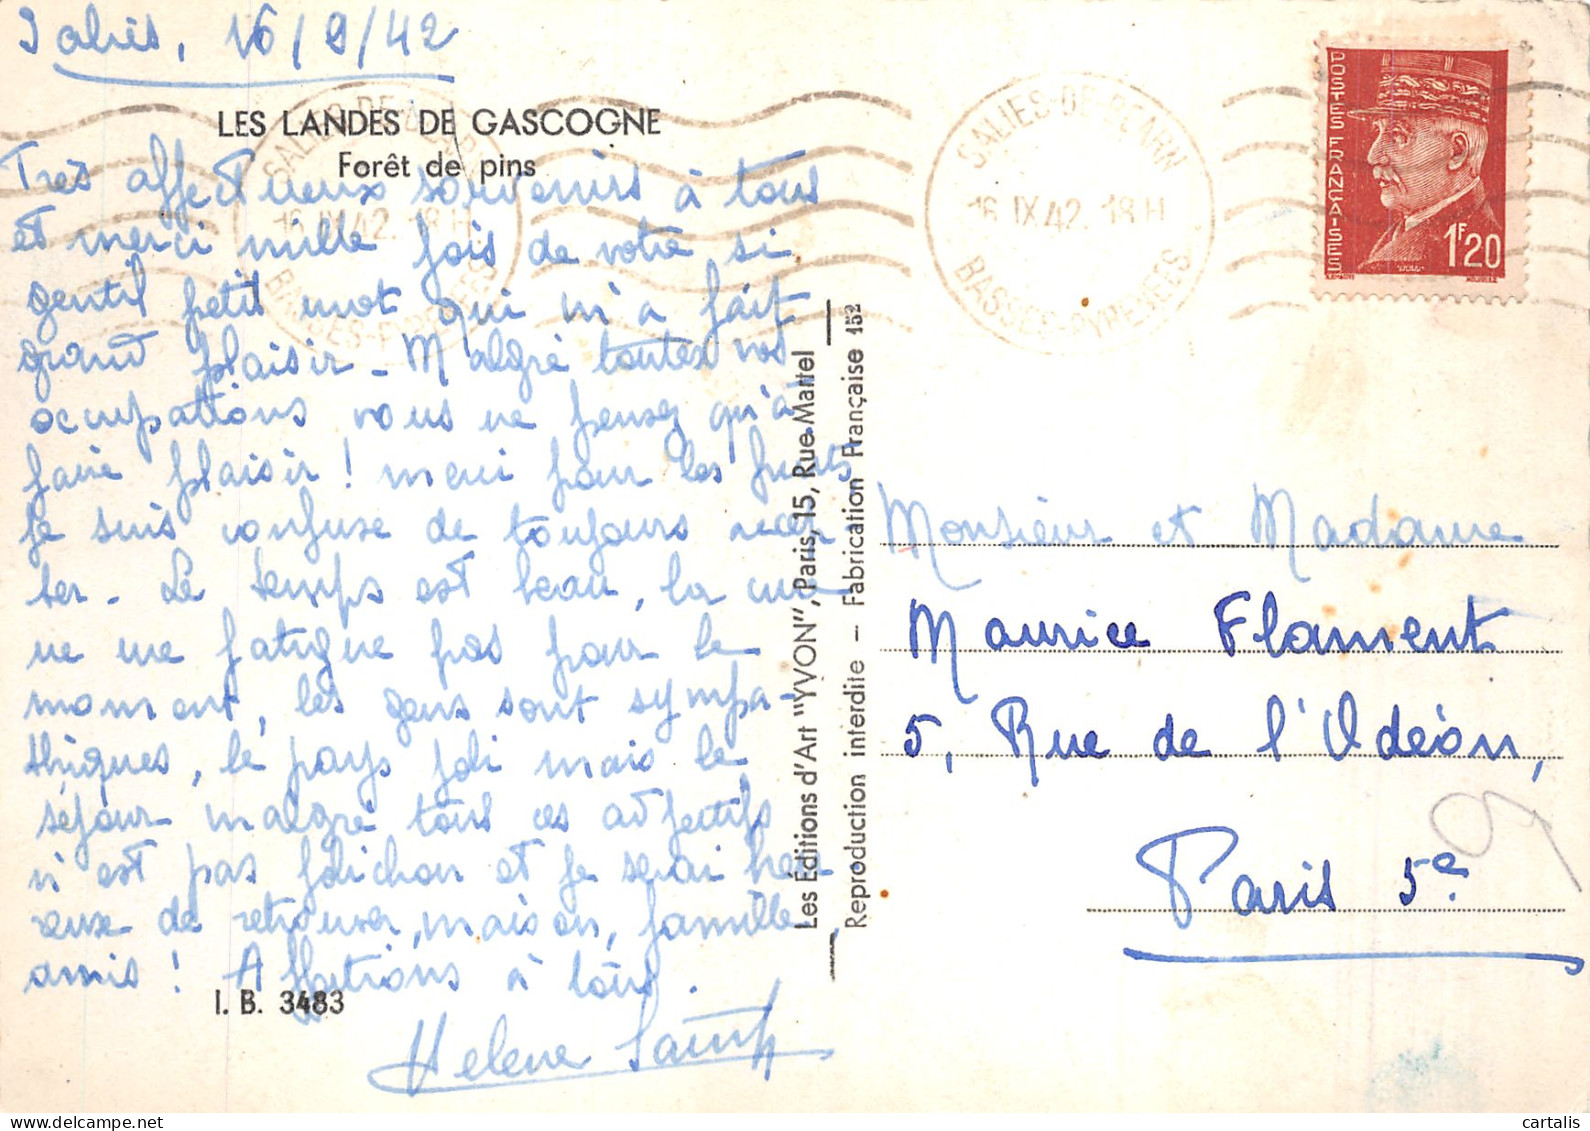 Salies, 16/9/42
LES LANDES DE GASCOGNE
Forêt de pins
Très affectueux souvenirs à tous
et merci mille fois de votre si
gentil petit mot qui m'a fait
grand plaisir - Malgré toutes vos
occupations vous ne pensez qu'à
faire plaisir ! merci pour les fruits
je suis confuse de toujours accep
ter - Le temps est beau, la cure
ne me fatigue pas pour le
moment, les gens sont sympa-
thiques, le pays joli mais le
séjour malgré tous ces adjectifs
n'est pas folichon et je serai heu
reuse de retrouver, maison, famille,
amis ! Affections à tous.
I. B. 3483
Helene
Les Éditions d'Art "YVON", Paris, 15, Rue Martel
Reproduction interdite – Fabrication Française 152
SALIES-DE-BÉARN
16 IX 42. 18 H
BASSES-PYRENEES
SALIES-DE-BEARN
16 IX 42. 18 H
BASSES-PYRENEES
POSTES FRANÇAISES
1F20
Monsieur et Madame
Maurice Flament
5, Rue de l'Odéon,
Paris 5e
cartalis